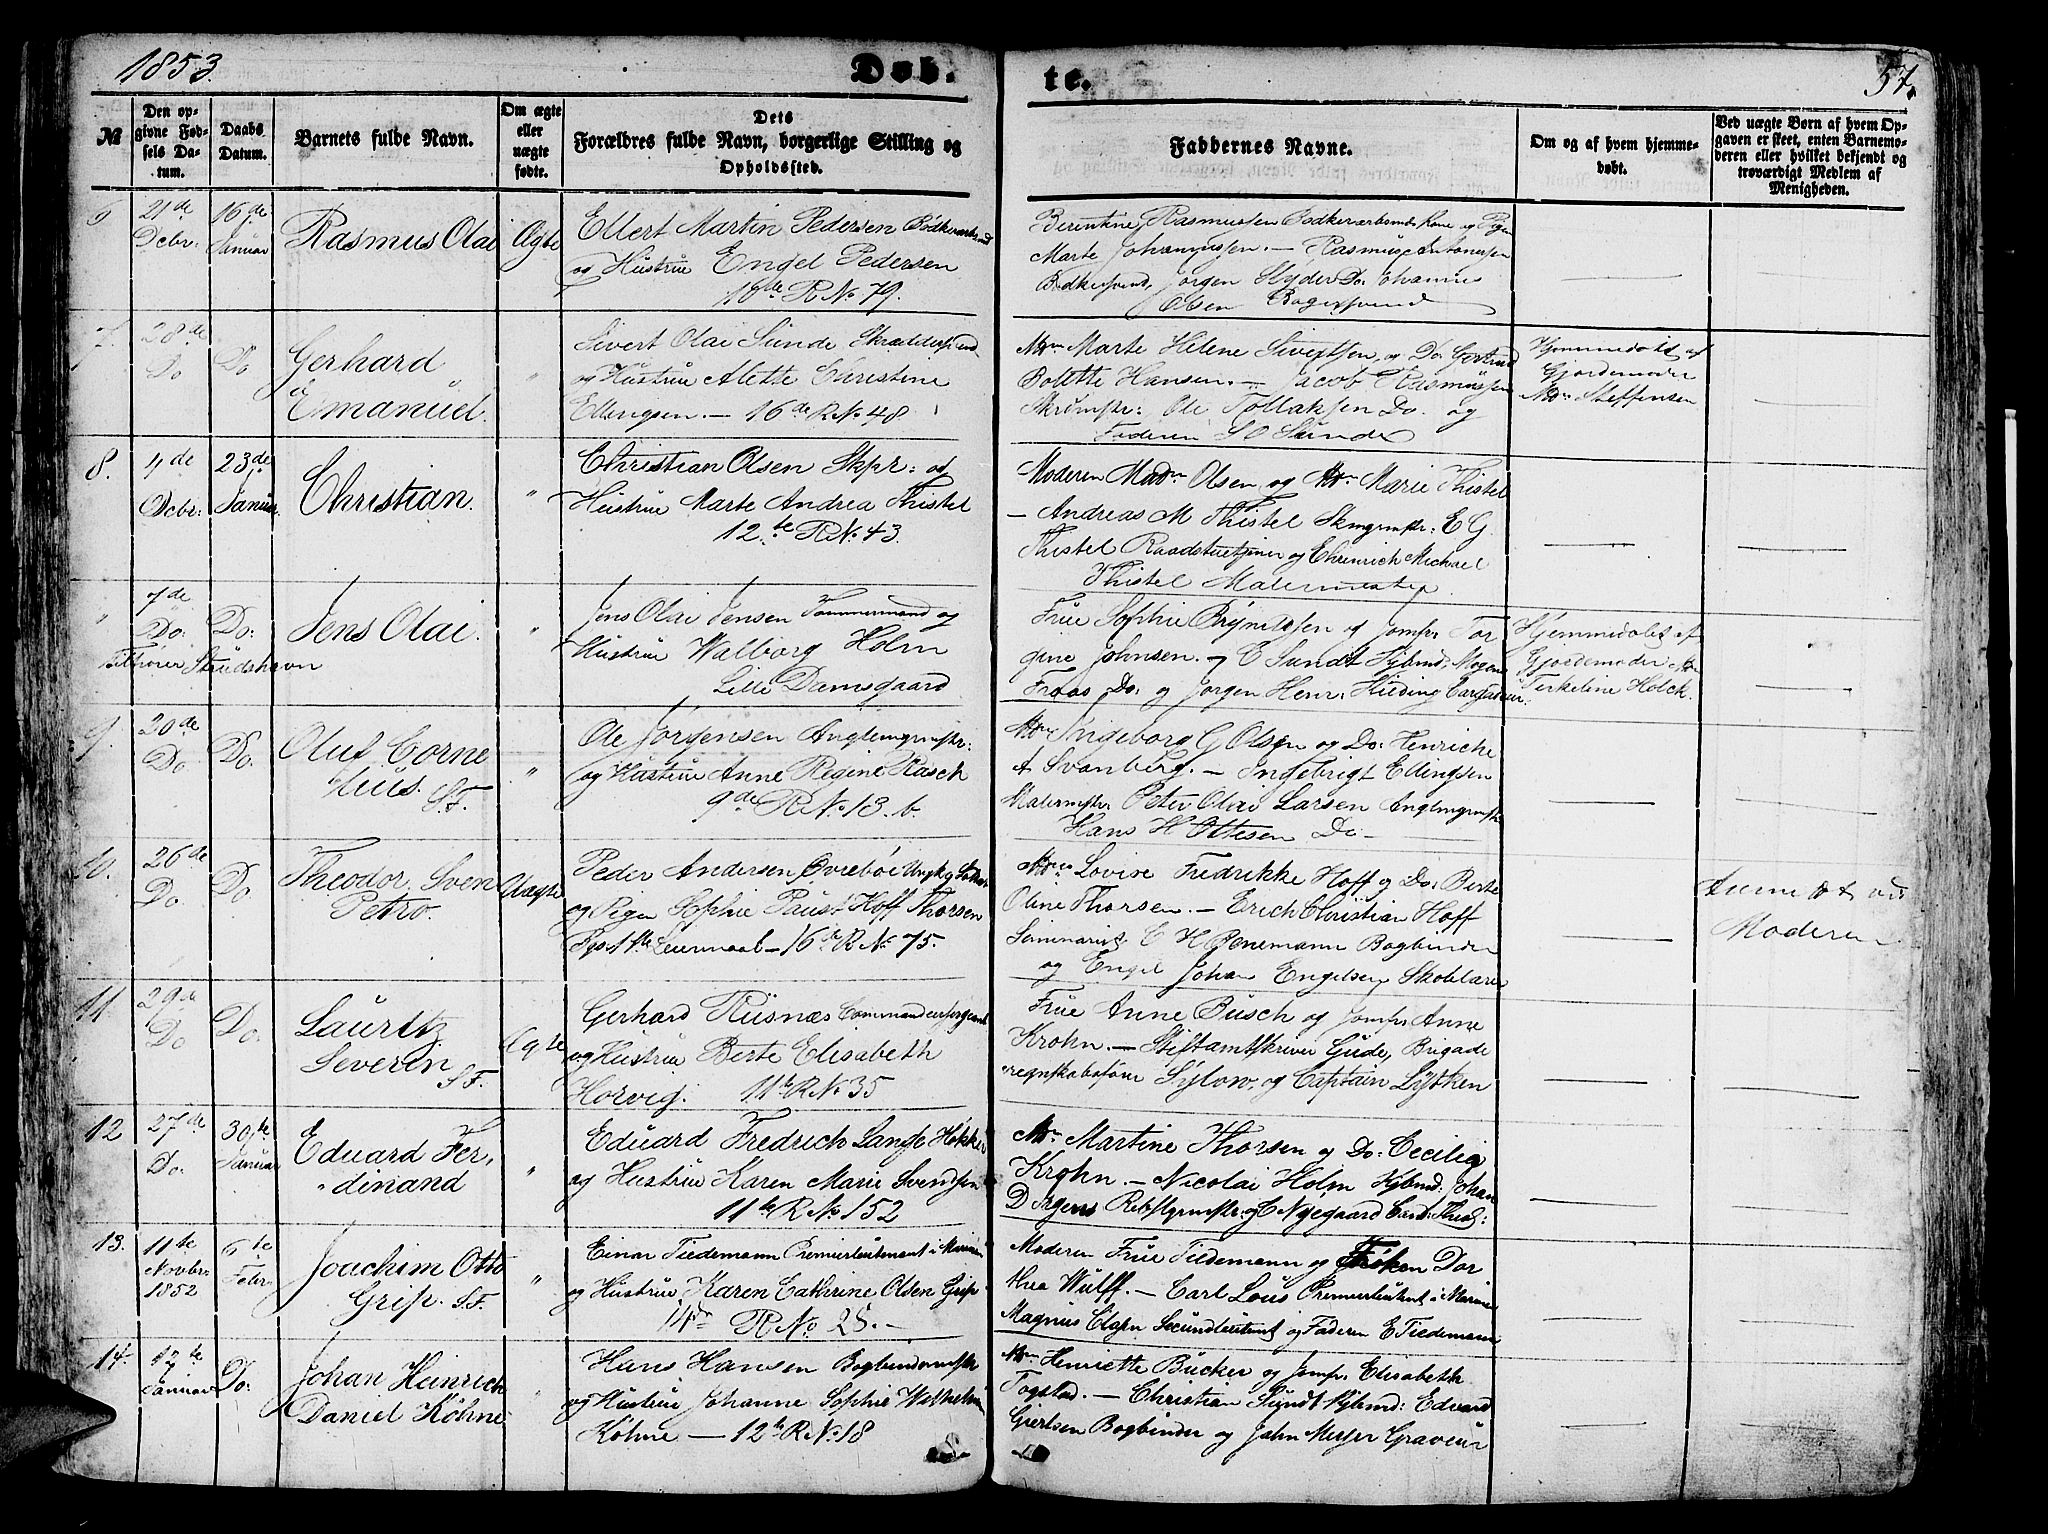 1853.
Døb.
te.
57.
№
Den opgivne Fødsels Datum.
Daabs Datum.
Barnets fulde Navn.
Om ægte eller uægte fødte.
Dets Forældres fulde Navn, borgerlige Stilling og Opholdssted.
Faddernes Navne.
Om og af hvem hjemmedøbt.
Ved uægte Børn af hvem Opgaven er skeet, enten Barnemoderen eller hvilket bekjendt og troværdigt Medlem af Menigheden.
6
21de Decbr:
16de Januar
Rasmus Olai
Ægte
Ellert Martin Pedersen
og Hustrue Engel Pedersen
18te R No 79.
Berentine Rasmussen Kone og Pigen
Marte Johannessen. — Rasmus Antonussen
Bødkersvend, Jørgen Slyder Do. Johannes
Olsen Bagersvend
7.
28de Do
Do
Gerhard
Emanuel.
"
Sivert Olai Sunde
og Hustrue Alette Christine
Ellingsen. — 16de R No 48
Mdm Marte Helene Sivertsen, og Do. Gertrud
Bolette Hansen. — Jacob Rasmussen
Ole Tollaksen Do. og
Faderen S O Sunde
Hjemmedøbt af
Gjordemoder
Mdm Steffensen
8.
4de Decbr:
23de Januar
Christian.
"
Christian Olsen Skpr: og
Hustrue Marte Andrea Thistel
12te R No. 43.
Moderen Madm Olsen, og Mdm Marie Thistel
— Andreas M Thistel E G
Thistel Raadstuetjener og Ehrenrich Michael
Thistel Malermester
"
7de Do:
Do:
Jens Olai.
"
Tilhører Strudshavn
Jens Olai Jensen Tømmermand og
Hustrue Walborg Holm
Lille Damsgaard
Frue Sophie Brynildsen og Jomfr. Tor
gine Johnsen. — E Sundt Kjbmd, Mogens
Fraas Do. og Jørgen Henr:
Hjemmedøbt af
Gjordemoder Mdm
Terkeline Holck.
9.
20de Do.
Do.
Oluf Corne
lius. S.F.
"
Ole Jørgensen
og Hustrue Anne Regine Rasch
9de R No 13. b.
Mdm Ingeborg G Olsen og Do: Henriche
A Svanberg. — Ingebrigt Ellingsen
Malermstr: Peter Olai Larsen
Hans H Ottesen Do —
10.
26de Do.
Do.
Theodor Sven
Petro.
Uægte
Peder Andersen Øvrebøe Ungk. og
og Pigen Sophie Paust Hoff Thorsen
1ste Leiermaal — 16de R No 75.
Mdm Lovise Fredrikke Hoff og Do: Berte
Oline Thorsen. — Erich Christian Hoff
Seminarist C H Penemann Bogbinder
og Engel Johan Engelsen Skolelærer
Moderen
11.
29de Do
Do.
Lauritz
Severin S.F.
Ægte
Gerhard Rusnæs Commandeersergeant
og Hustrue Berte Elisabeth
Horvig. 11te R No 35
Frue Anne Busch og Jomfr: Anne
Krohn. — Stiftamtskriver Gude, Brigade
regnskabsfører Sylow, og Captain Lytken
12
27de Do.
30te Januar
Eduard Fer,
dinand
"
Eduard Fredrich Lange Høkker
og Hustrue Karen Marie Svendsen
11te R No 152
Mdm Martine Thorsen og Do: Cecilia
Krohn. — Nicolai Holm Kjbmd. Johan
D Jrgens og C Nyegaard Cand: Theol:
13.
11te Novbr: 1852
6te Febr
Joachim Otto
Grip. S.F.
"
Einar Tiedemann Premierleutnant i Marinen
og Hustrue Karen Cathrine Olsen Grip
14de R No 28. —
Moderen Frue Tiedemann og Frøken Dor
thea Wulff. — Carl Lous Premierleutnant i Marinen
Magnus Olsen Secundleutnant og Faderen E Tiedemann
14.
12te Januar
Do.
Johan Heinrich
Daniel Köhne
"
Hans Hansen Bogbindermstr
og Hustrue Johanne Sophie Wilhelmine
Köhne — 12te R No 18
Mdm Henriette Bucker og Jomfr. Elisabeth
Togstad. — Christian Sundt Kjbmd: Edvard
Giertsen Bogbinder og John Meyer Graveur